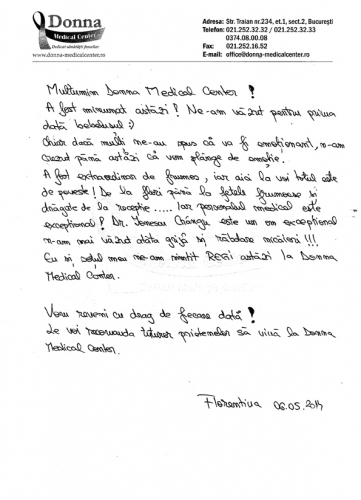 Donna
Medical Center
Dedicat sănătății femeilor
www.donna-medicalcenter.ro
Adresa: Str. Traian nr.234, et.1, sect.2, București
Telefon: 021.252.32.32 / 021.252.32.33
0374.08.00.08
Fax: 021.252.16.52
E-mail: office@donna-medicalcenter.ro
Multumim Donna Medical Center !
A fost minunat astăzi ! Ne-am văzut pentru prima
dată bebelusul :)
Chiar dacă multi ne-au spus că va fi emotionant, n-am
crezut până astăzi că vom plânge de emotie.
A fost extraordinar de frumos, iar aici la voi totul este
de poveste ! De la flori până la fetele frumoase si
drăgute de la receptie ..... Iar personalul medical este
exceptional ! Dr. Ionescu este un om exceptional
n-am mai văzut atâta grijă si răbdare nicăieri !!!
Eu si sotul meu ne-am simtit REGI astăzi la Donna
Medical Center.
Vom reveni cu drag de fiecare dată !
Le voi recomanda tuturor prietenelor să vină la Donna
Medical Center.
Florentina 06.05.2014